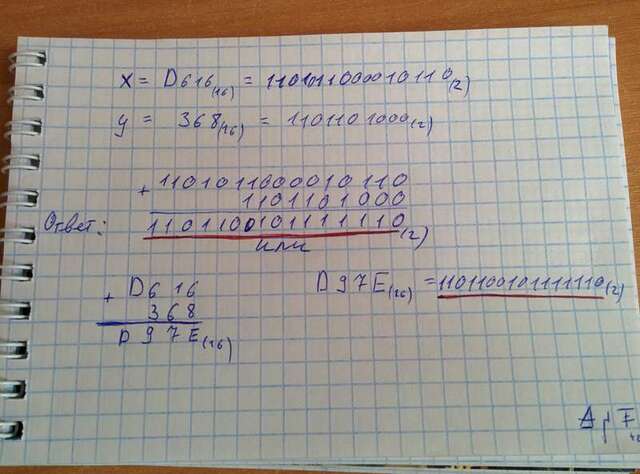 x = D616(16) = 1101011000010110(2)
y = 368(16) = 1101101000(2)
+ 1101011000010110
1101101000
Ответ: 1101100101111110(2)
или
+ D616
368
D97E(16)
D97E(16) = 1101100101111110(2)